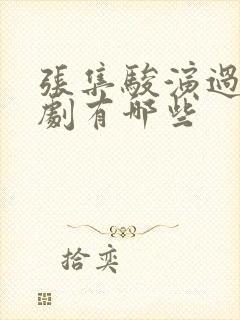 張集駿演過
劇有哪些
拾奕